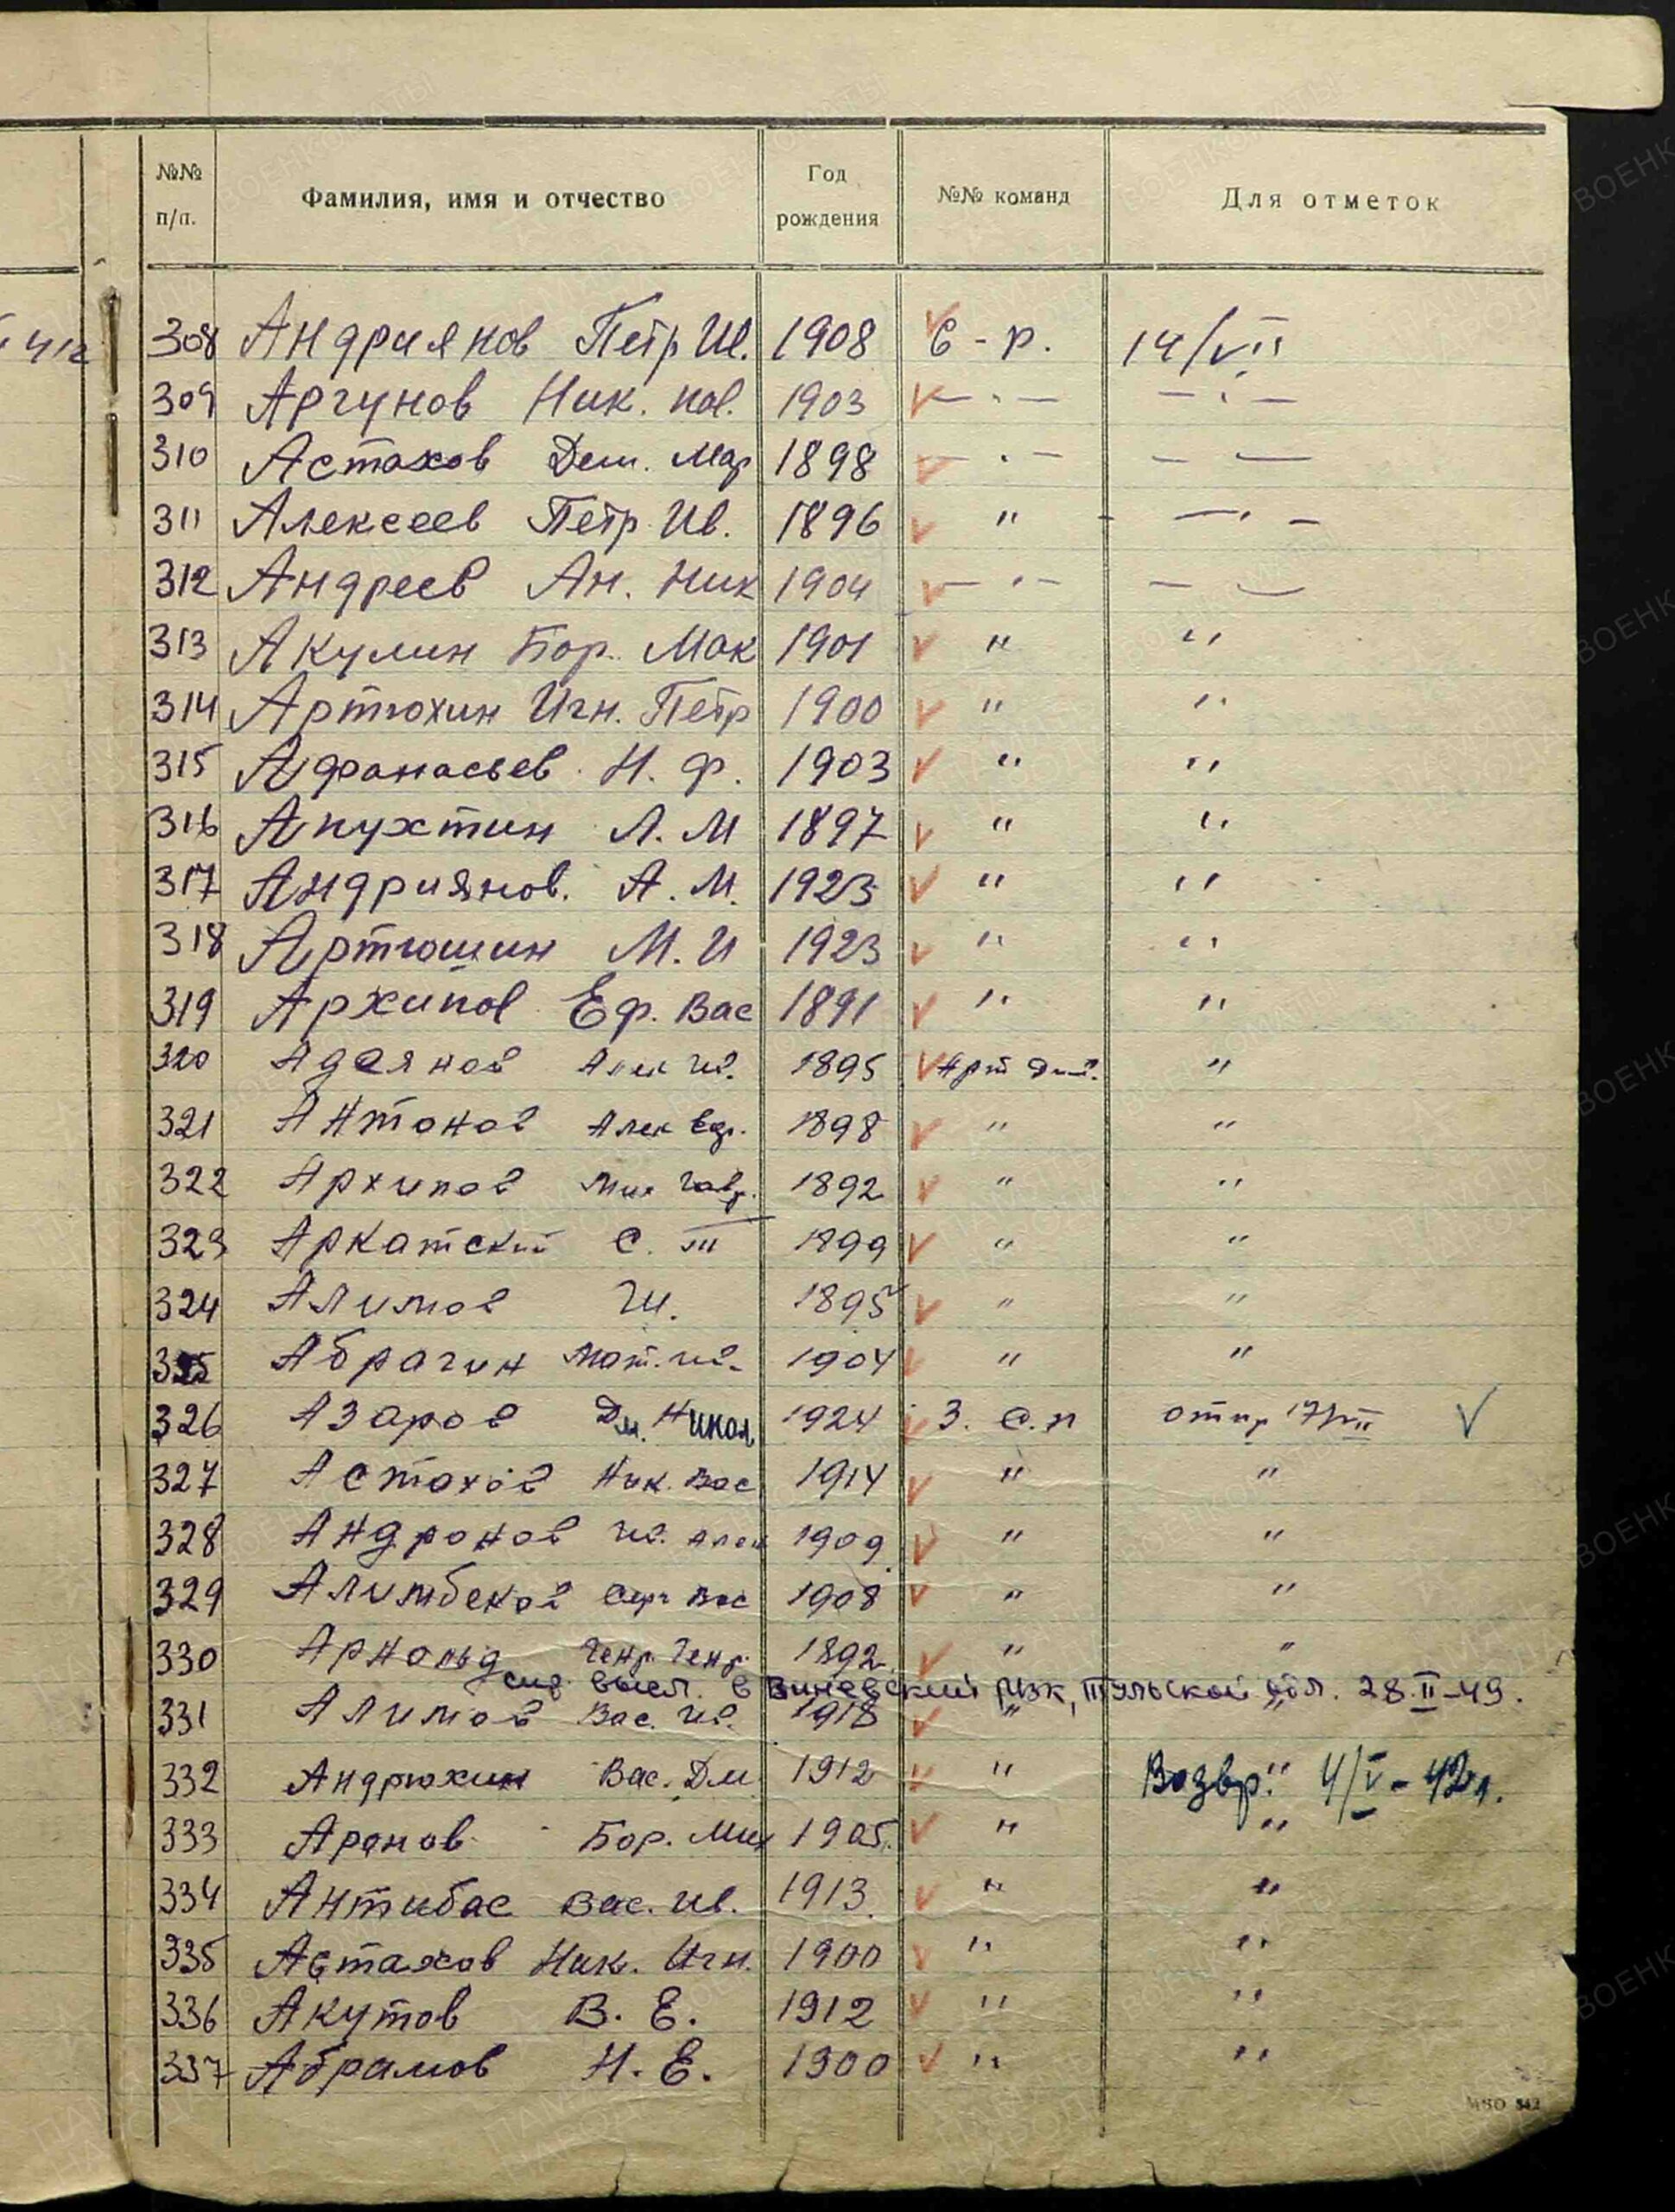 №№ п/п. Фамилия, имя и отчество Год рождения №№ команд Для отметок
308 Андриянов Петр Ив. 1908 С-р. 14/VII
309 Аргунов Ник. Пав. 1903 — " — — " —
310 Астахов Дем. Мар 1898 — " — — —
311 Алексеев Петр Ив. 1896 " — " —
312 Андреев Ан. Ник 1904 — " — — —
313 Акулин Бор. Мак 1901 " "
314 Артюхин Игн. Петр 1900 " "
315 Афанасьев Н. Ф. 1903 " "
316 Апухтин Л. М 1897 " "
317 Андриянов. А. М. 1923 " "
318 Артюшин М. И 1923 " "
319 Архипов Еф. Вас 1891 " "
320 Алек Ив. 1895 Арт Див. "
321 Антонов Алек Еф. 1898 " "
322 Архипов Мих Гавр. 1892 " "
323 Аркатский С. Т 1899 " "
324 Алимов И. 1895 " "
325 Абрагин Мат. Ив. 1904 " "
326 Азаров Дм. Никол 1924 З. С.П отпр 17/VII
327 Астахов Ник. Вас 1914 " "
328 Андронов Ив. Алек 1909 " "
329 Алимбеков Серг Вас 1908 " "
330 Арнольд Генр. Генр. 1892 " "
высл. в Виневский РВК, Тульской обл. 28.II-49.
331 Алимов Вас. Ив. 1918 " "
332 Андрюхин Вас. Дм 1912 " Возвр. " 4/V-42г.
333 Аронов Бор. Мих 1905. " "
334 Антибас Вас. Ив. 1913. " "
335 Астахов Ник. Игн. 1900 " "
336 Акутов В. Е. 1912 " "
337 Абрамов Н. Е. 1900 " "